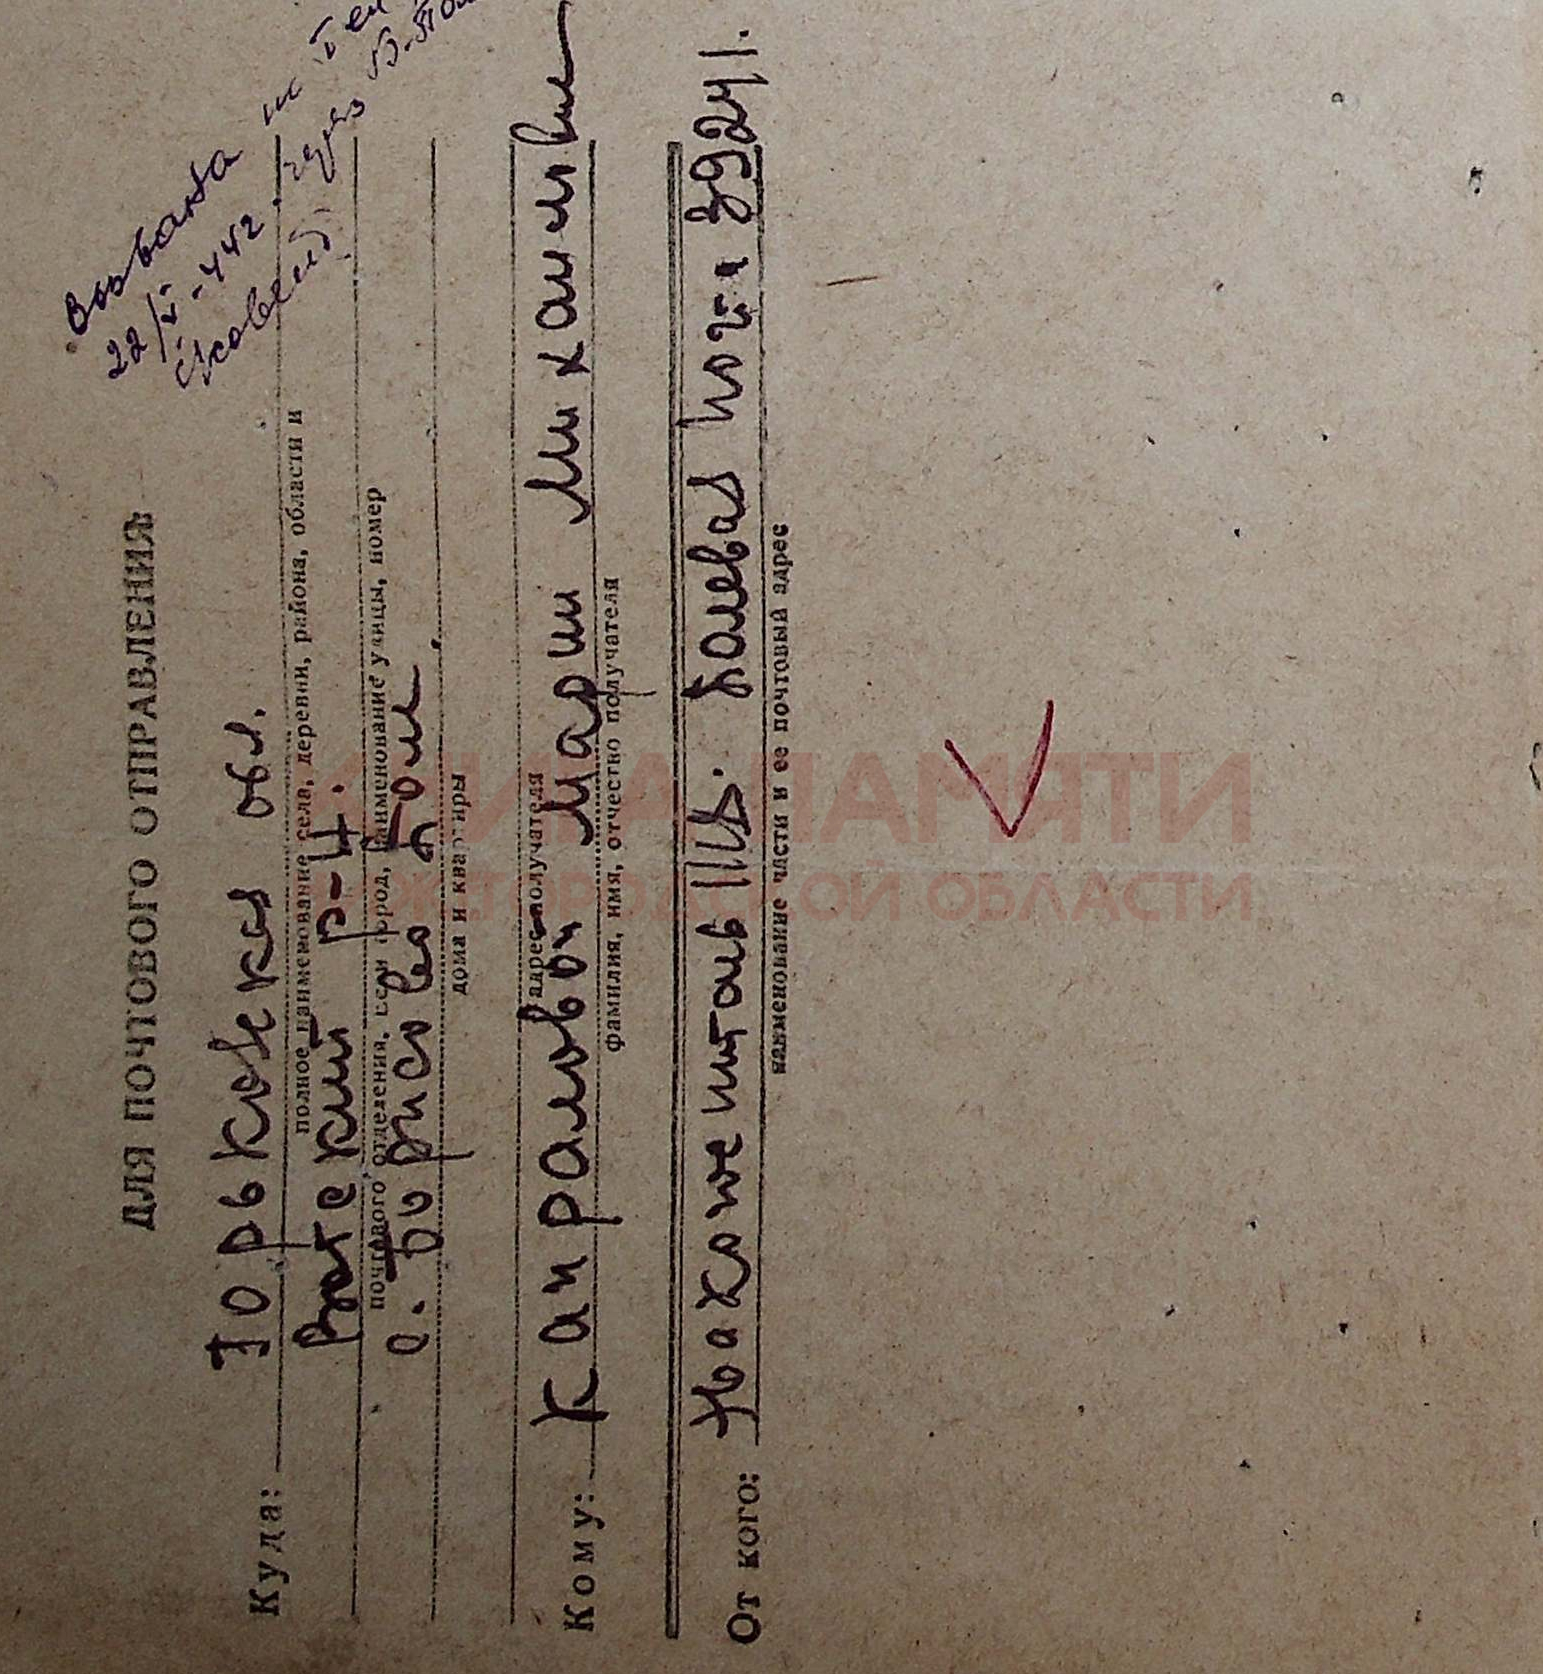 Вызвана
22/V-442. через
ДЛЯ ПОЧТОВОГО ОТПРАВЛЕНИЯ
Куда: Горьковская обл.
полное наименование села, деревни, района, области и
Ватский р-н.
почтового отделения, если город, наименование улицы, номер
с. Борисово Поле
дома и квартиры
Кому: Капраловой Марии Михайловне
адрес получателя
фамилия, имя, отчество получателя
От кого:
Полевая почта 39241.
наименование части и ее почтовый адрес
КНИГА ПАМЯТИ
НИЖЕГОРОДСКОЙ ОБЛАСТИ